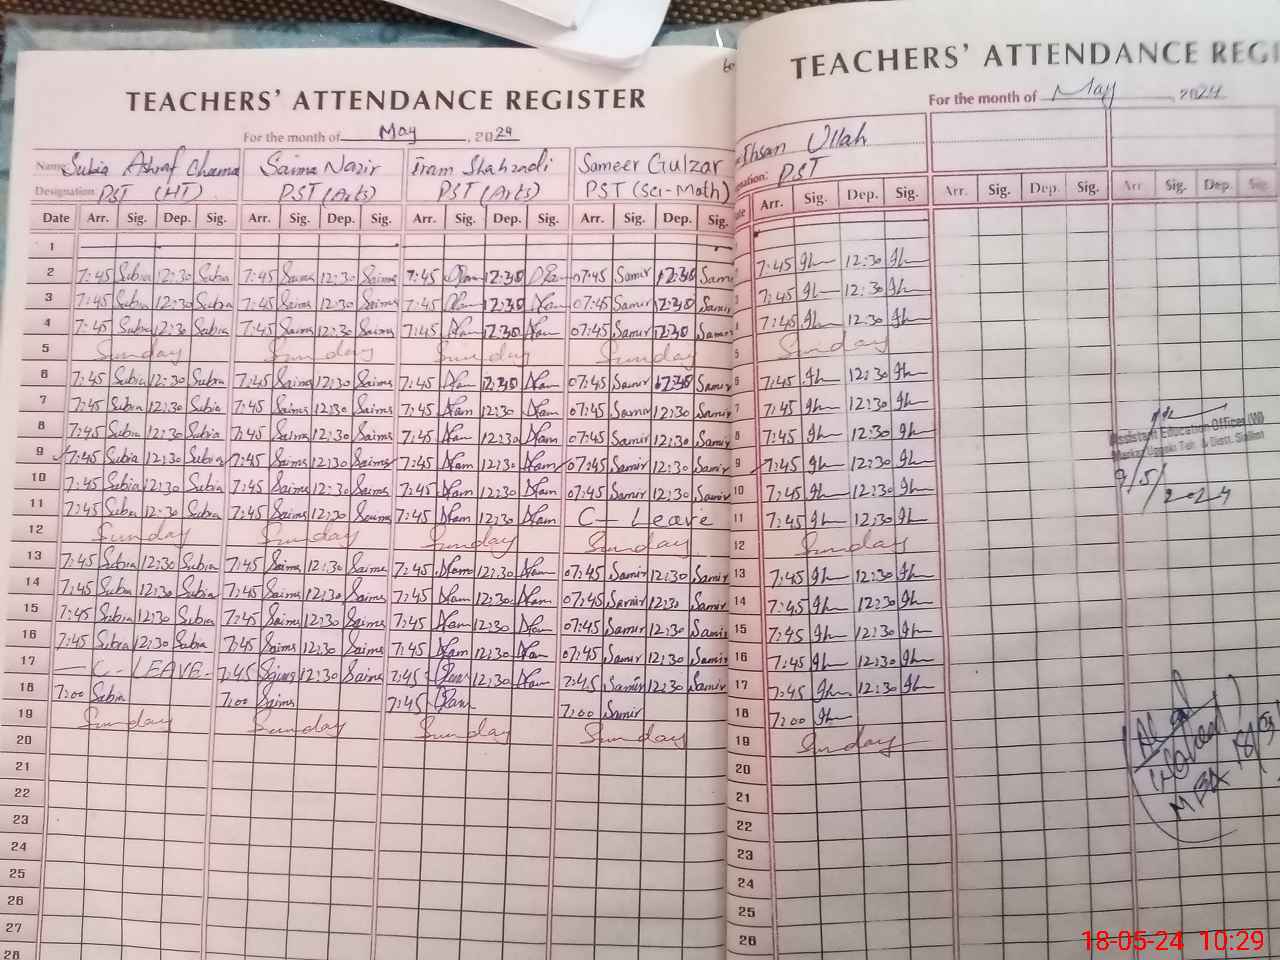 TEACHERS' ATTENDANCE REGISTER
For the month of May, 2024
Name Subia Ashraf Cheema Saima Nazir Iram Shahzadi Sameer Gulzar
Designation: PST (HT) PST (Arts) PST (Arts) PST (Sci-Math)
Date Arr. Sig. Dep. Sig. Arr. Sig. Dep. Sig. Arr. Sig. Dep. Sig. Arr. Sig. Dep. Sig.
1
2 7:45 Subia 12:30 Subia 7:45 Saima 12:30 Saima 7:45 12:30 07:45 Samir 12:30 Samir
3 7:45 Subia 12:30 Subia 7:45 Saima 12:30 Saima 7:45 12:30 07:45 Samir 12:30 Samir
4 7:45 Subia 12:30 Subia 7:45 Saima 12:30 Saima 7:45 12:30 07:45 Samir 12:30 Samir
5 Sunday Sunday Sunday Sunday
6 7:45 Subia 12:30 Subia 7:45 Saima 12:30 Saima 7:45 12:30 07:45 Samir 12:30 Samir
7 7:45 Subia 12:30 Subia 7:45 Saima 12:30 Saima 7:45 12:30 07:45 Samir 12:30 Samir
8 7:45 Subia 12:30 Subia 7:45 Saima 12:30 Saima 7:45 12:30 07:45 Samir 12:30 Samir
9 7:45 Subia 12:30 Subia 7:45 Saima 12:30 Saima 7:45 12:30 07:45 Samir 12:30 Samir
10 7:45 Subia 12:30 Subia 7:45 Saima 12:30 Saima 7:45 12:30 07:45 Samir 12:30 Samir
11 7:45 Subia 12:30 Subia 7:45 Saima 12:30 Saima 7:45 12:30 C- Leave
12 Sunday Sunday Sunday Sunday
13 7:45 Subia 12:30 Subia 7:45 Saima 12:30 Saima 7:45 12:30 07:45 Samir 12:30 Samir
14 7:45 Subia 12:30 Subia 7:45 Saima 12:30 Saima 7:45 12:30 07:45 Samir 12:30 Samir
15 7:45 Subia 12:30 Subia 7:45 Saima 12:30 Saima 7:45 12:30 07:45 Samir 12:30 Samir
16 7:45 Subia 12:30 Subia 7:45 Saima 12:30 Saima 7:45 12:30 07:45 Samir 12:30 Samir
17 C- LEAVE 7:45 Saima 12:30 Saima 7:45 12:30 7:45 Samir 12:30 Samir
18 7:00 Subia 7:00 Saima 7:45 7:00 Samir
19 Sunday Sunday Sunday Sunday
20
21
22
23
24
25
26
27
28
TEACHERS' ATTENDANCE REGI
For the month of May, 2024
Ehsan Ullah
PST
Arr. Sig. Dep. Sig. Arr. Sig. Dep. Sig. Arr. Sig. Dep. Sig.
7:45 12:30
3 7:45 12:30
4 7:45 12:30
5 Sunday
6 7:45 12:30
7 7:45 12:30
8 7:45 12:30
9 7:45 12:30
10 7:45 12:30
11 7:45 12:30
12 Sunday
13 7:45 12:30
14 7:45 12:30
15 7:45 12:30
16 7:45 12:30
17 7:45 12:30
18 7:00
19 Sunday
20
21
22
23
24
25
26
Assistant Education Officer (W)
Markaz Ugoki Teh. & Distt. Sialkot
9/5/2024
18-05-24 10:29